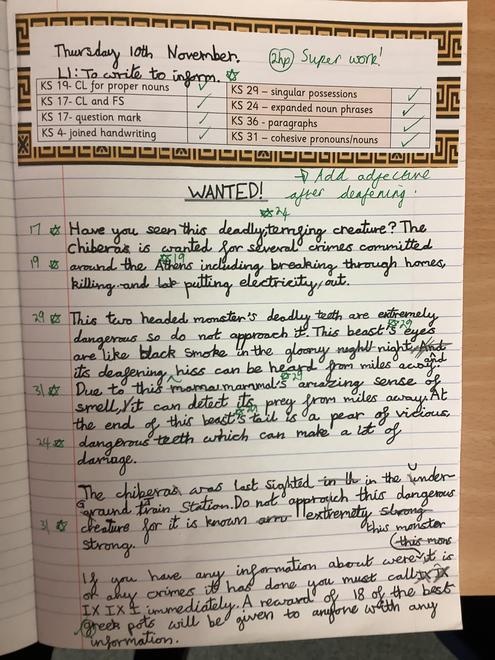 Thursday 10th November.
2hp Super work!
LI: To write to inform.
KS 19- CL for proper nouns ✓ KS 29 – singular possessions ✓
KS 17- CL and FS ✓ KS 24 – expanded noun phrases ✓
KS 17- question mark ✓ KS 36 - paragraphs ✓
KS 4- joined handwriting ✓ KS 31 – cohesive pronouns/nouns ✓
Add adjective
after deafening!
WANTED!
24
17 Have you seen this deadly, terrifying creature? The
chiberas is wanted for several crimes committed
19
19 around the Athens including breaking through homes,
killing and putting electricity, out.
29 This two headed monster's deadly teeth are extremely
dangerous so do not approach it. This beast's eyes
29
are like black smoke in the gloomy night. And
its deafening hiss can be heard from miles away. and
29
31 Due to this mammal's amazing sense of
smell, it can detect its prey from miles away. At
the end of this beast's tail is a pear of vicious,
24 dangerous teeth which can make a lot of
damage.
The chiberas was last sighted in the under-
ground train Station. Do not approach this dangerous
31 creature for it is known extremely strong
this monster
strong.
If you have any information about were it is
or any crimes it has done you must call IX
IX IX I immediately. A reward of 18 of the best
greek pots will be given to anyone with any
information.